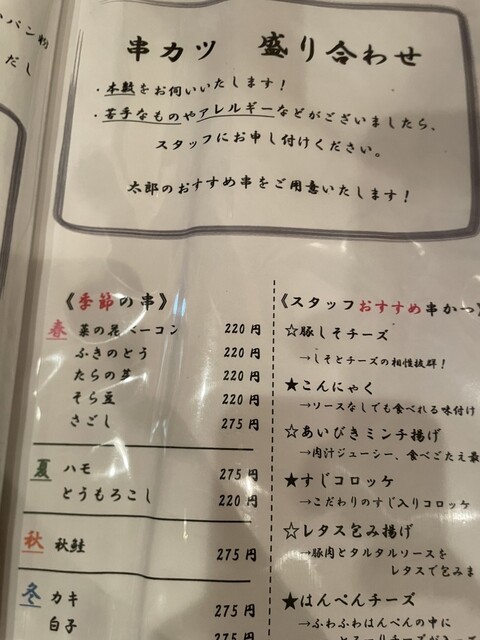 パン粉
だし
串カツ 盛り合わせ
・本数をお伺いいたします!
・苦手なものやアレルギーなどがございましたら、
スタッフにお申し付けください。
太郎のおすすめ串をご用意いたします!
《季節の串》
春 菜の花ベーコン 220円
ふきのとう 220円
たらの芽 220円
そら豆 220円
さごし 275円
夏 ハモ 275円
とうもろこし 220円
秋 秋鮭 275円
冬 カキ 275円
白子 275円
《スタッフおすすめ串かつ》
☆豚しそチーズ
→しそとチーズの相性抜群!
★こんにゃく
→ソースなしでも食べれる味付け
☆あいびきミンチ揚げ
→肉汁ジューシー、食べごたえ最
★すじコロッケ
→こだわりのすじ入りコロッケ
☆レタス包み揚げ
→豚肉とタルタルソースを
レタスで包みま
★はんぺんチーズ
→ふわふわはんぺんの中に
とろーりチーズが